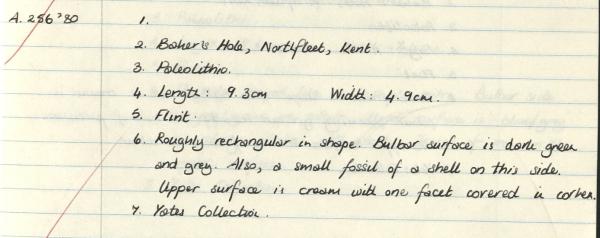 A.256'80 1.
2. Baker's Hole, Northfleet, Kent.
3. Paleolithic.
4. Length: 9.3cm Width: 4.9cm.
5. Flint.
6. Roughly rechangular in shape. Bulbar surface is dark green
and grey. Also, a small fossil of a shell on this side.
Upper surface is cream with one facet covered in cortex.
7. Yates Collection.